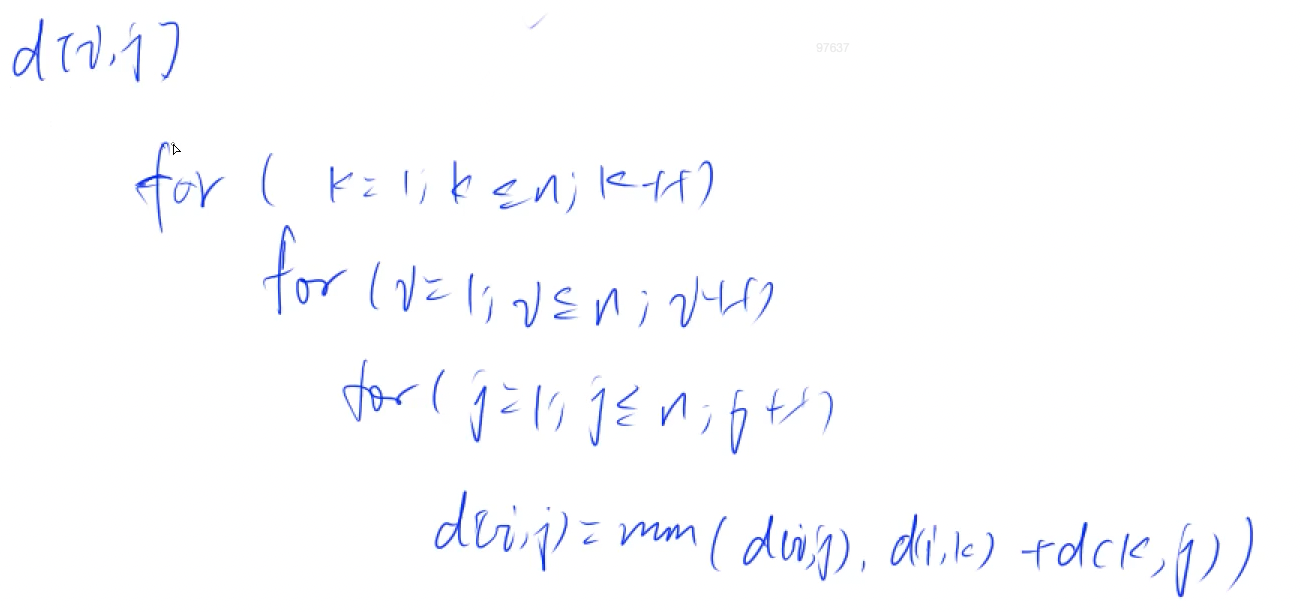 d[i,j]
97637
for ( k=1; k≤n; k++)
for (i=1; i≤n; i++)
for( j=1; j≤n; j++)
d(i,j)=min(d(i,j), d(i,k) +d(k,j))